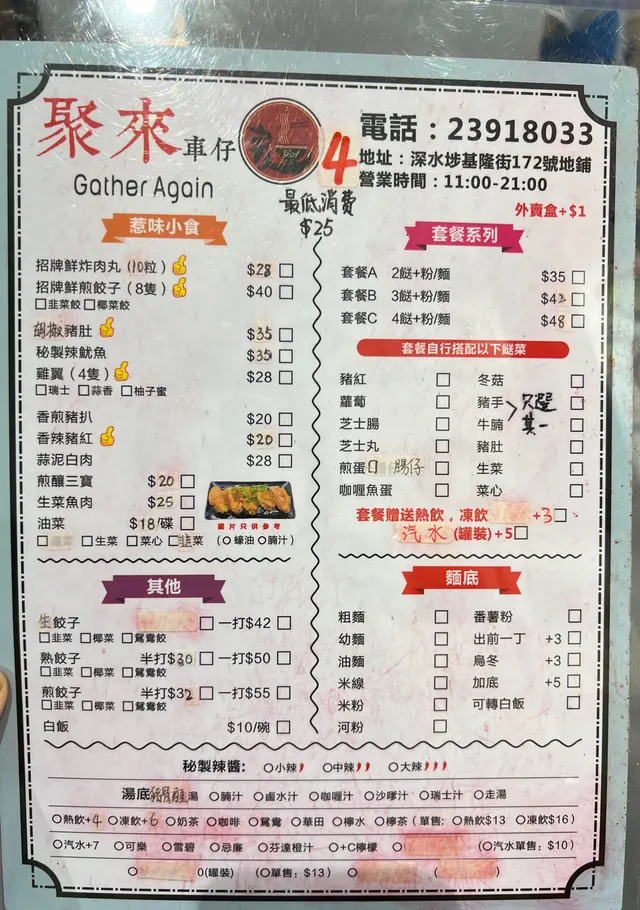 聚來車仔
Gather Again
4
電話：23918033
地址：深水埗基隆街172號地鋪
營業時間：11:00-21:00
最低消費
$25
外賣盒+$1
惹味小食
招牌鮮炸肉丸（10粒） $28
招牌鮮煎餃子（8隻） $40
韭菜餃 椰菜餃
胡椒豬肚 $35
秘製辣魷魚 $35
雞翼（4隻） $28
瑞士 蒜香 柚子蜜
香煎豬扒 $20
香辣豬紅 $20
蒜泥白肉 $28
煎釀三寶 $20
生菜魚肉 $25
油菜 $18/碟
生菜 菜心 韭菜 （蠔油 腩汁）
圖片只供參考
其他
生餃子 一打$42
韭菜 椰菜 鴛鴦餃
熟餃子 半打$30 一打$50
韭菜 椰菜 鴛鴦餃
煎餃子 半打$32 一打$55
韭菜 椰菜 鴛鴦餃
白飯 $10/碗
套餐系列
套餐A 2餸+粉/麵 $35
套餐B 3餸+粉/麵 $42
套餐C 4餸+粉/麵 $48
套餐自行搭配以下餸菜
豬紅 冬菇
蘿蔔 豬手
芝士腸 牛腩
只選
其一
芝士丸 豬肚
煎蛋 腸仔 生菜
咖喱魚蛋 菜心
套餐贈送熱飲，凍飲 +3
汽水 (罐裝)+5
麵底
粗麵 番薯粉
幼麵 出前一丁 +3
油麵 烏冬 +3
米線 加底 +5
米粉 可轉白飯
河粉
秘製辣醬： 小辣 中辣 大辣
湯底 湯 腩汁 鹵水汁 咖喱汁 沙嗲汁 瑞士汁 走湯
熱飲+4 凍飲+6 奶茶 咖啡 鴛鴦 華田 檸水 檸茶（單售： 熱飲$13 凍飲$16）
汽水+7 可樂 雪碧 忌廉 芬達橙汁 +C檸檬 （汽水單售：$10）
0(罐裝) （單售：$13）